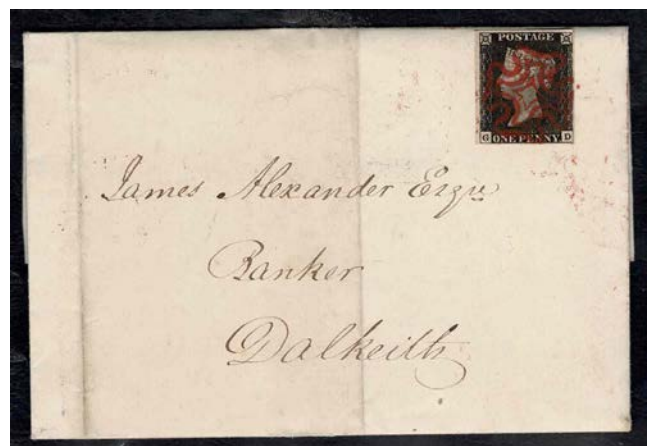 POSTAGE
G ONE PENNY D
James Alexander Esqu
Banker
Dalkeith